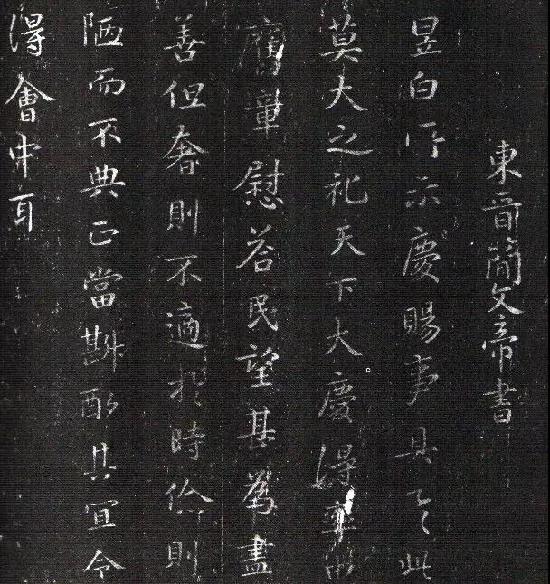 東晉簡文帝書
昱白所示慶賜事具之此
莫大之祀天下大慶得率
舊章慰答民望甚為盡
善但奢則不適於時儉則
陋而不典正當斟酌其宜令
得會中耳